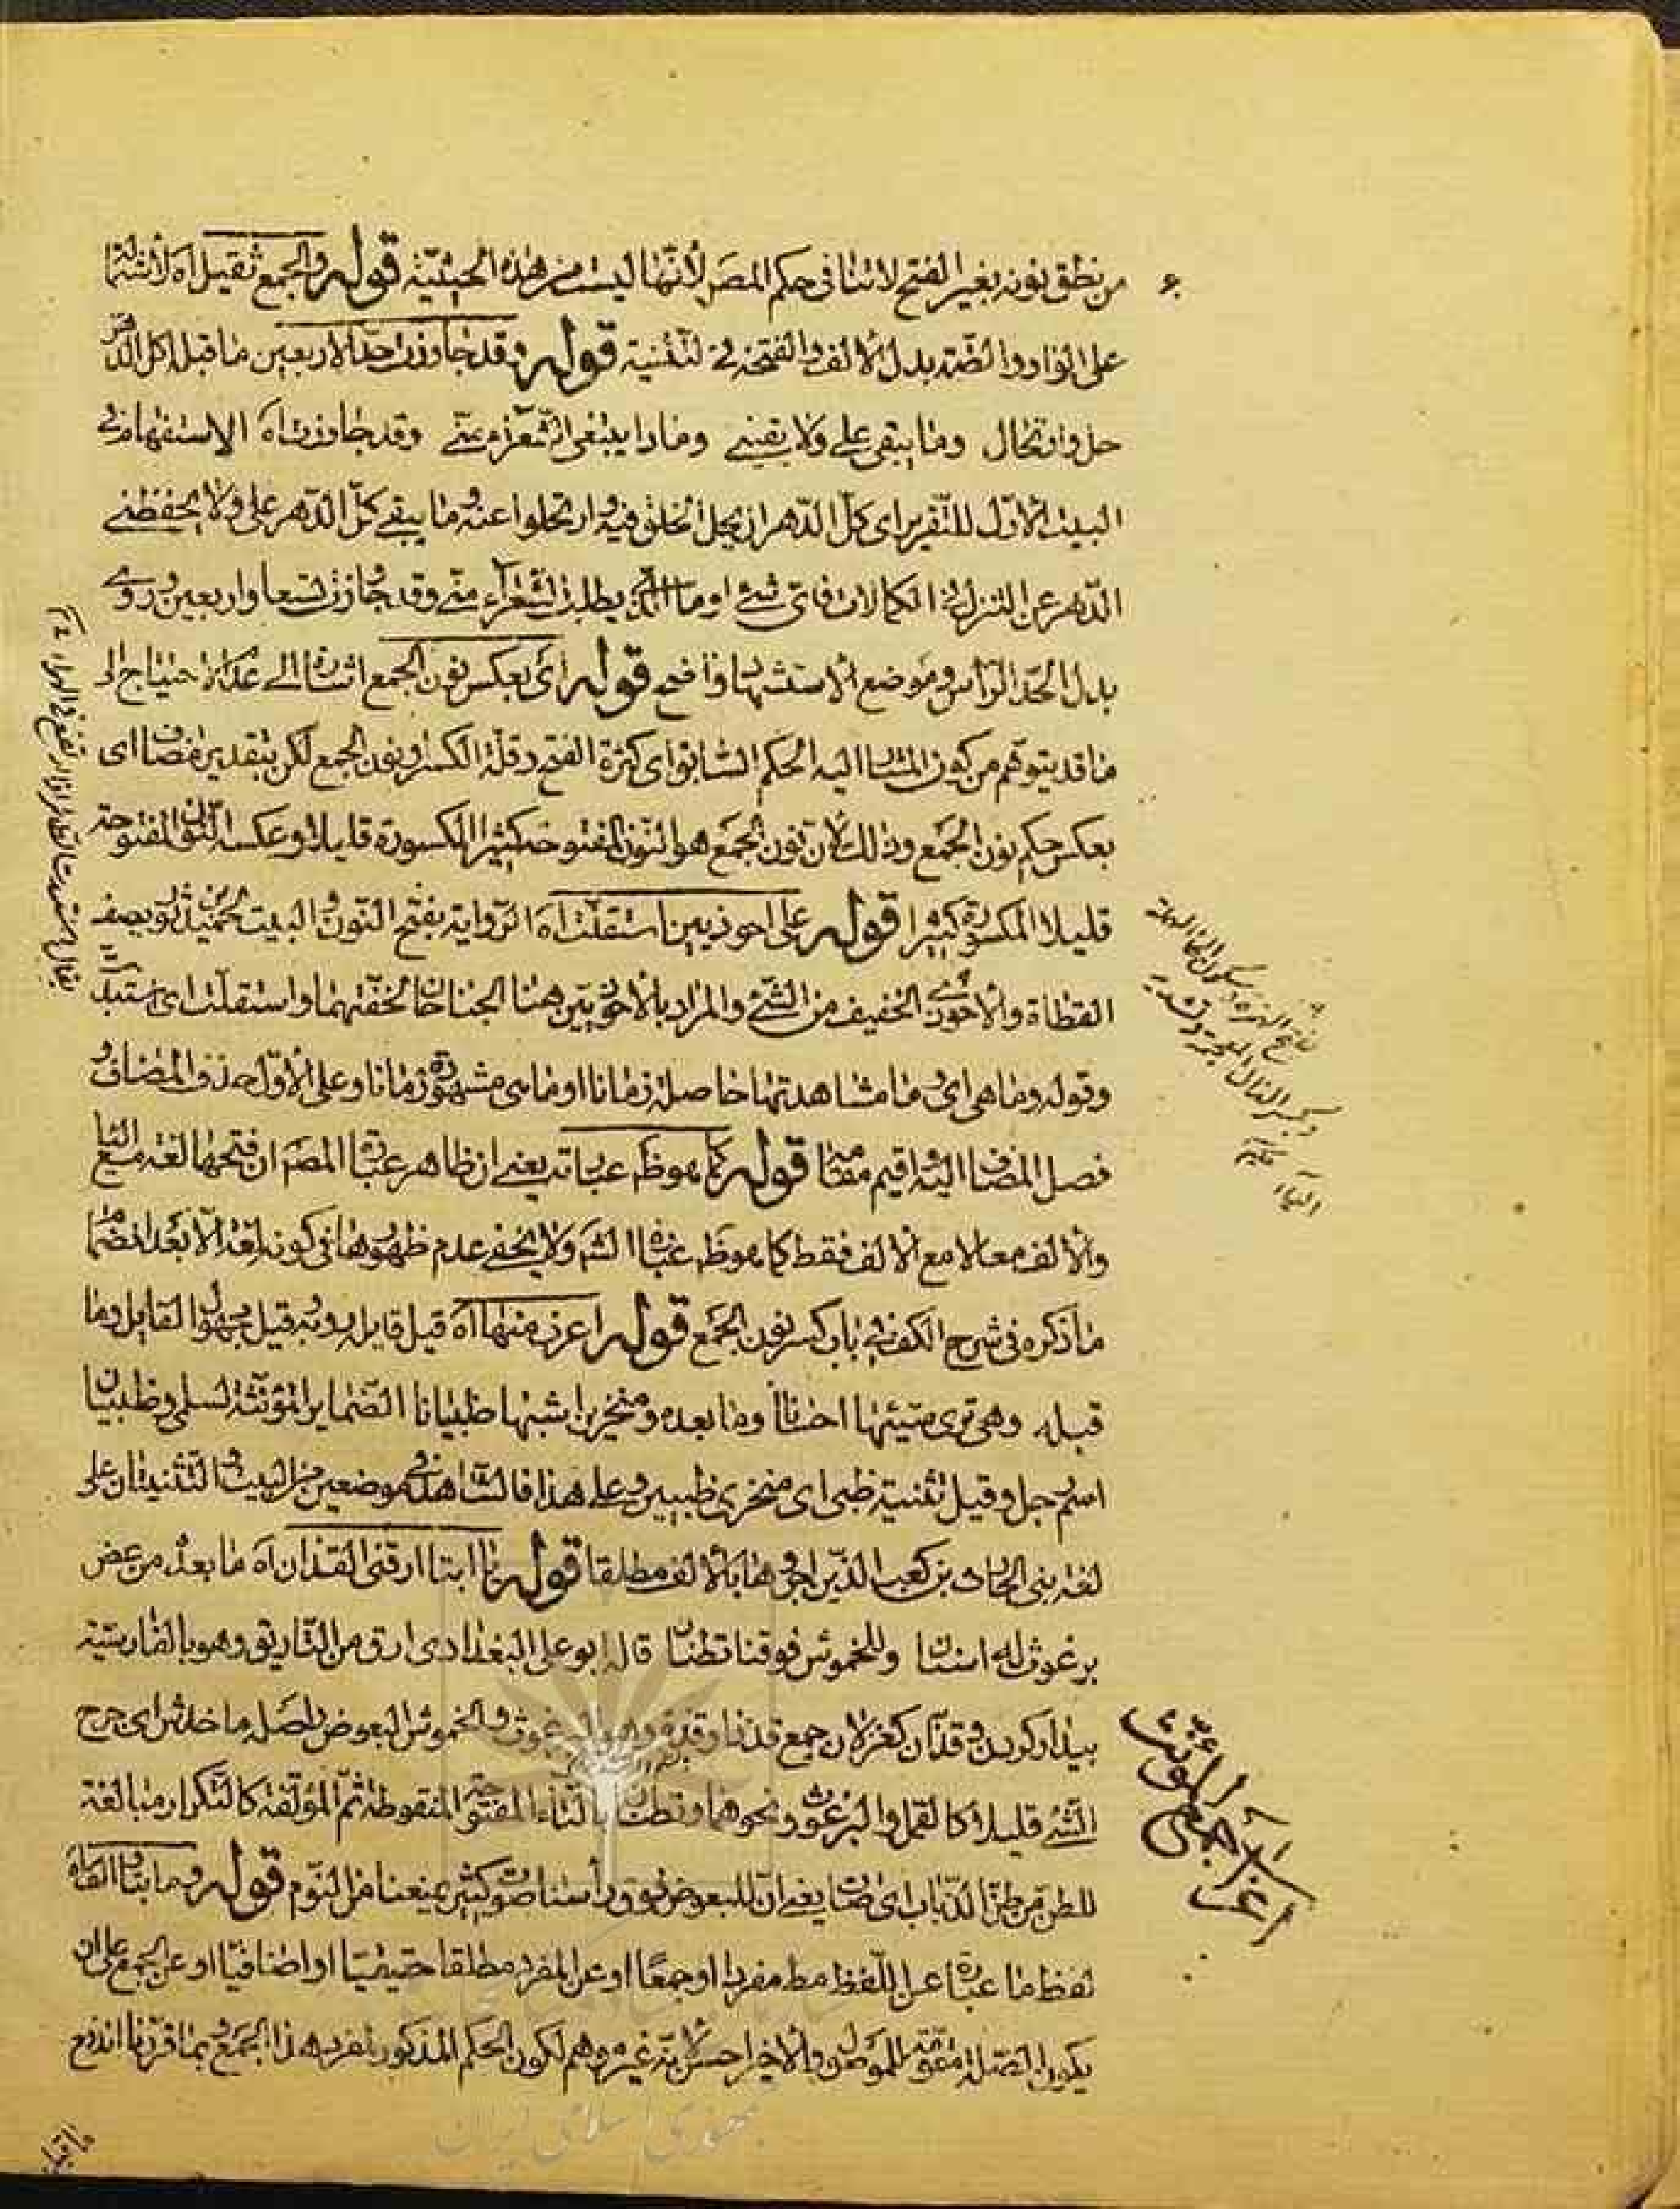 من نطق بنونه بغير الفتح لاثنا فى حكم المص لأنّها ليست من هذه الحيثيّة قوله والجمع ثقيل اه لاشتماله
على الواو والضمّة بدل الالف والفتحة فى التثنية قوله وقد جاوزت حدّ الاربعين ما قبله اكل الدّهر
حل وارتحال وما يبقى على ولا يقينى وماذا يبتغى الشعراء منّى وقد جاوزت اه الاستفهام فى
البيت الاوّل للتّقرير اى كلّ الدّهر ان يحل الخلق فيه وارتحلوا عنه وما يبقى كلّ الدّهر على ولا يحفظنى
الدّهر عن التنزل فى الكمالات فاى شئ او ما الّذى يطلب الشعراء منّى وقد جاوزت تسعا واربعين وروى
بدل الحدّ الرأس وموضع الاستشهاد واضح قوله اى بعكس نون الجمع اشارة الى عدم الاحتياج الى
ما قد يتوهّم من كون المشار اليه الحكم السّابق اى كثرة الفتح وقلّة الكسر ونون الجمع لكن بتقدير مضاف اى
بعكس حكم نون الجمع وذلك لأن نون الجمع هو النّون المفتوحة كثيرا المكسورة قليلا وعكسه النّون المفتوحة
قليلا المكسورة كثيرا قوله على احوذيين استقلّت اه الرّواية بفتح النّون والبيت لحميد بن ثور يصف
القطاة والأحوذى الخفيف من الشّئ والمراد بالأحوذيّين هنا الجناحان لخفّتهما واستقلّت اى استبدّت
وقوله وما هى اى ما مشاهدتها حاصلة زمانا او ما هى مشهودة زمانا وعلى الأوّل حذف المضاف و
فصل المضاف اليه واقيم مقامه قوله كما هو ظ عبارته يعنى ان ظاهر عبارة المصّ ان فتحها لغة مع الياء
والالف معا لا مع الالف فقط كما هو ظ عبارة الشّ ولا يخفى عدم ظهورها فى كونه لغة الّا بعد انضمام
ما ذكره فى شرح الكفى فى باب كسر نون الجمع قوله اعرف منها اه قيل قايله رؤبة وقيل مجهول القايل وما
قبله وهى ترى سيّئها احسانا وما بعده ومنخرين اشبها ظبيانا الضّماير المؤنّثة لسلمى وظبيان
اسم رجل وقيل تثنية ظبى اى منخرى ظبيين وعلى هذا فالشّاهد فى موضعين من البيت والتّثنيتان على
لغة بنى الحارث بن كعب الّذين اجروها بالألف مطلقا قوله يا ابتا ارقنى القذان اه ما بعده من عض
برغوث له اسنان وللخموش فوقنا تطنان قاله ابو على البغدادى ارق من التّاريق وهو بالفارسيّة
بيدار كردن وقذّان كغزلان جمع قذذ وقذة وهو البرغوث والخموش البعوض واصله ما خدش اى جرح
الشّئ قليلا كالقمل والبرغوث ونحوهما وتطنان بالتّاء المفتوحة المنقوطة ثمّ المؤلّفة كالتّكرار مبالغة
للطن من طنّ الذّباب اى صات يعنى انّ للبعوض فوق رأسنا صوت كثير يمنعنا من النّوم قوله وما بتا والف اه
لفظ ما عبارة عن اللّفظ مط مفردا او جمعًا او عن المفرد مطلقا حقيقيّا او اضافيّا او عن الجمع على ان
يكون الصّلة موصولة والاخير احسن لأنّه غير موهم لكون الحكم المذكور لمفرد هذا الجمع وبما قرّرنا اندفع
بفتح الهمزة وسكون الحاء المهملة
وكسر الذال المعجمة وتشديد
الياء